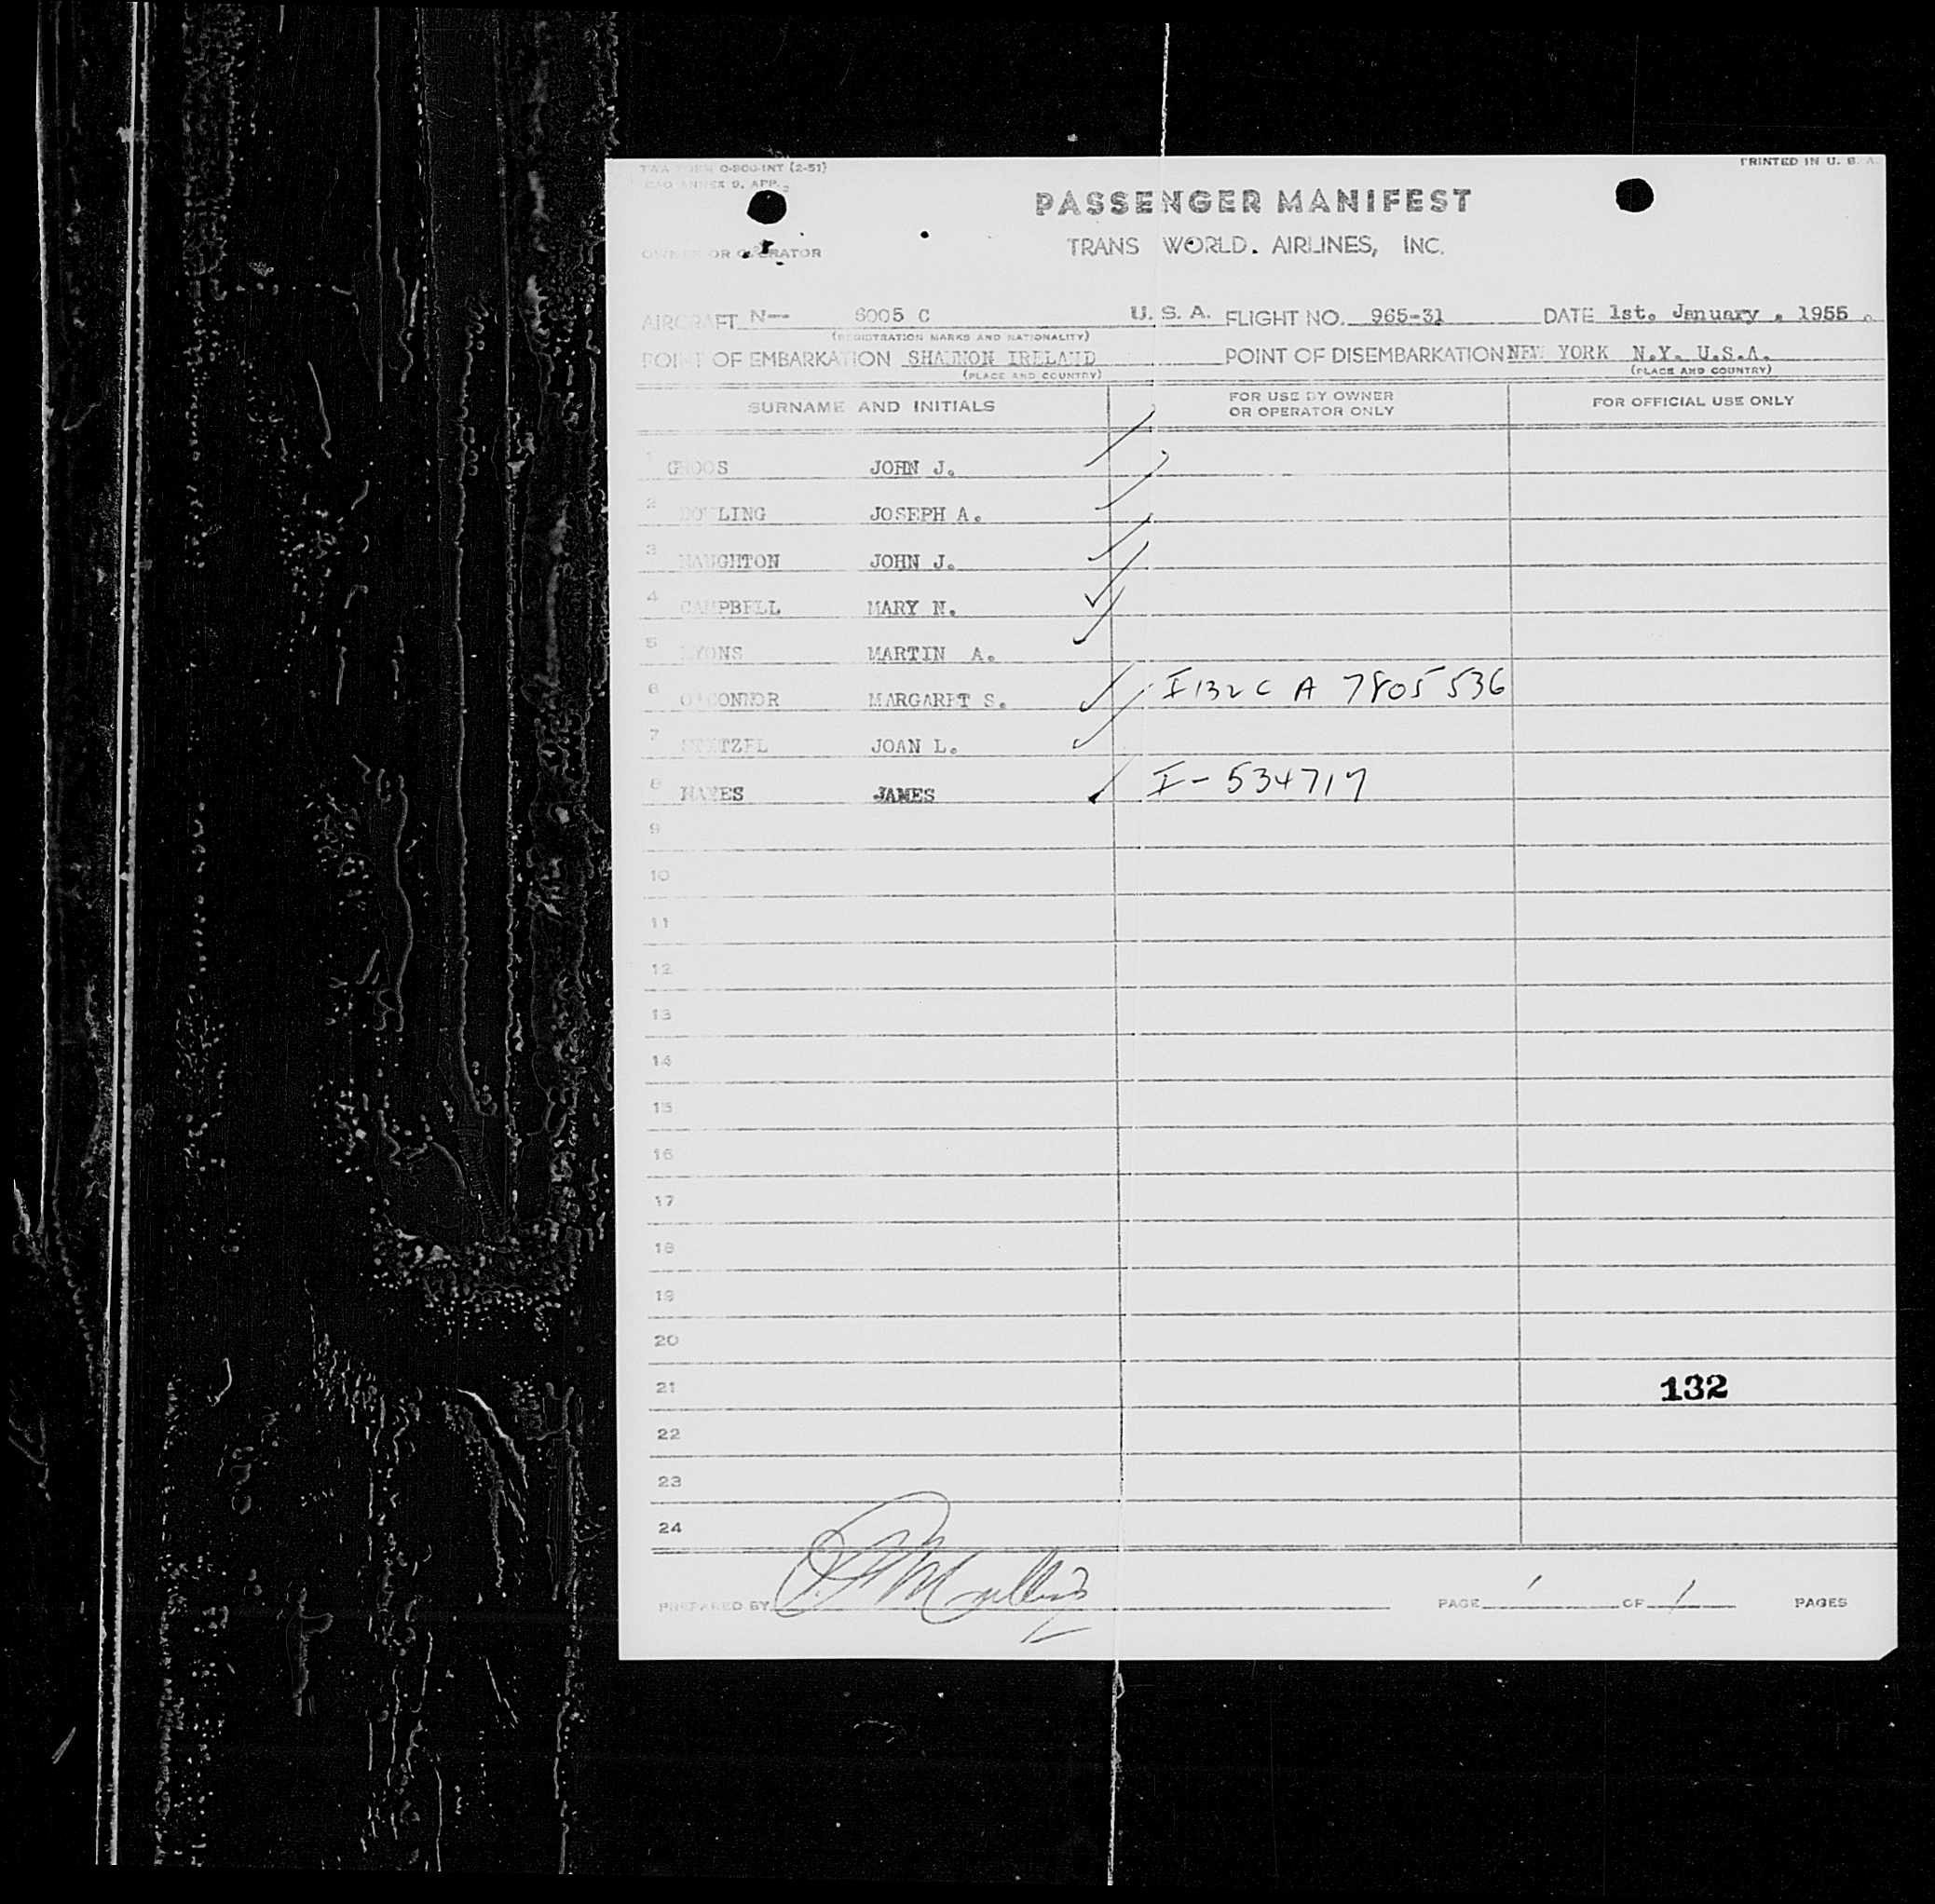 TWA FORM O-800-INT (2-51)
PRINTED IN U. S. A.
ICAO ANNEX 9, APP.
PASSENGER MANIFEST
OWNER OR OPERATOR
TRANS WORLD. AIRLINES, INC.
AIRCRAFT N-- 6005 C U. S. A. FLIGHT NO. 965-31 DATE 1st. January . 1955 .
(REGISTRATION MARKS AND NATIONALITY)
POINT OF EMBARKATION SHANNON IRELAND POINT OF DISEMBARKATION NEW YORK N.Y. U.S.A.
(PLACE AND COUNTRY) (PLACE AND COUNTRY)
SURNAME AND INITIALS FOR USE BY OWNER OR OPERATOR ONLY FOR OFFICIAL USE ONLY
1 JOHN J.
2 JOSEPH A.
3 NAUGHTON JOHN J.
4 CAMPBELL MARY N.
5 LYONS MARTIN A.
6 O'CONNOR MARGARET S. I 132 C A 7805 536
7 JOAN L.
8 HAYES JAMES I - 534717
9
10
11
12
13
14
15
16
17
18
19
20
21 132
22
23
24
PREPARED BY PAGE 1 OF 1 PAGES